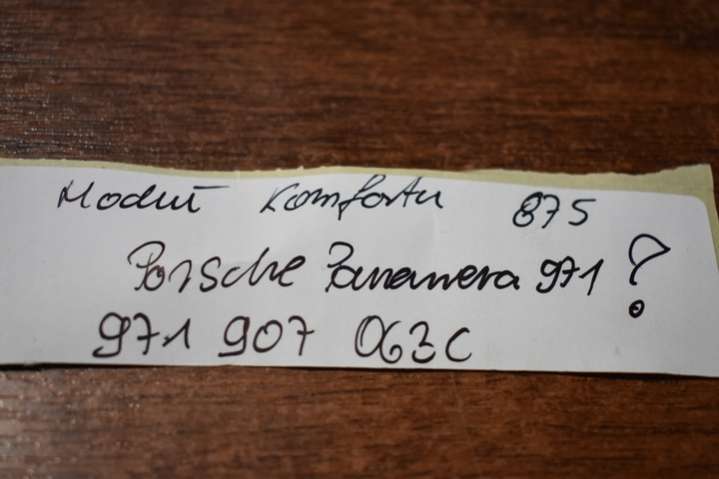 Moduł Komfortu 875
Porsche Panamera 971 ?
971 907 063C